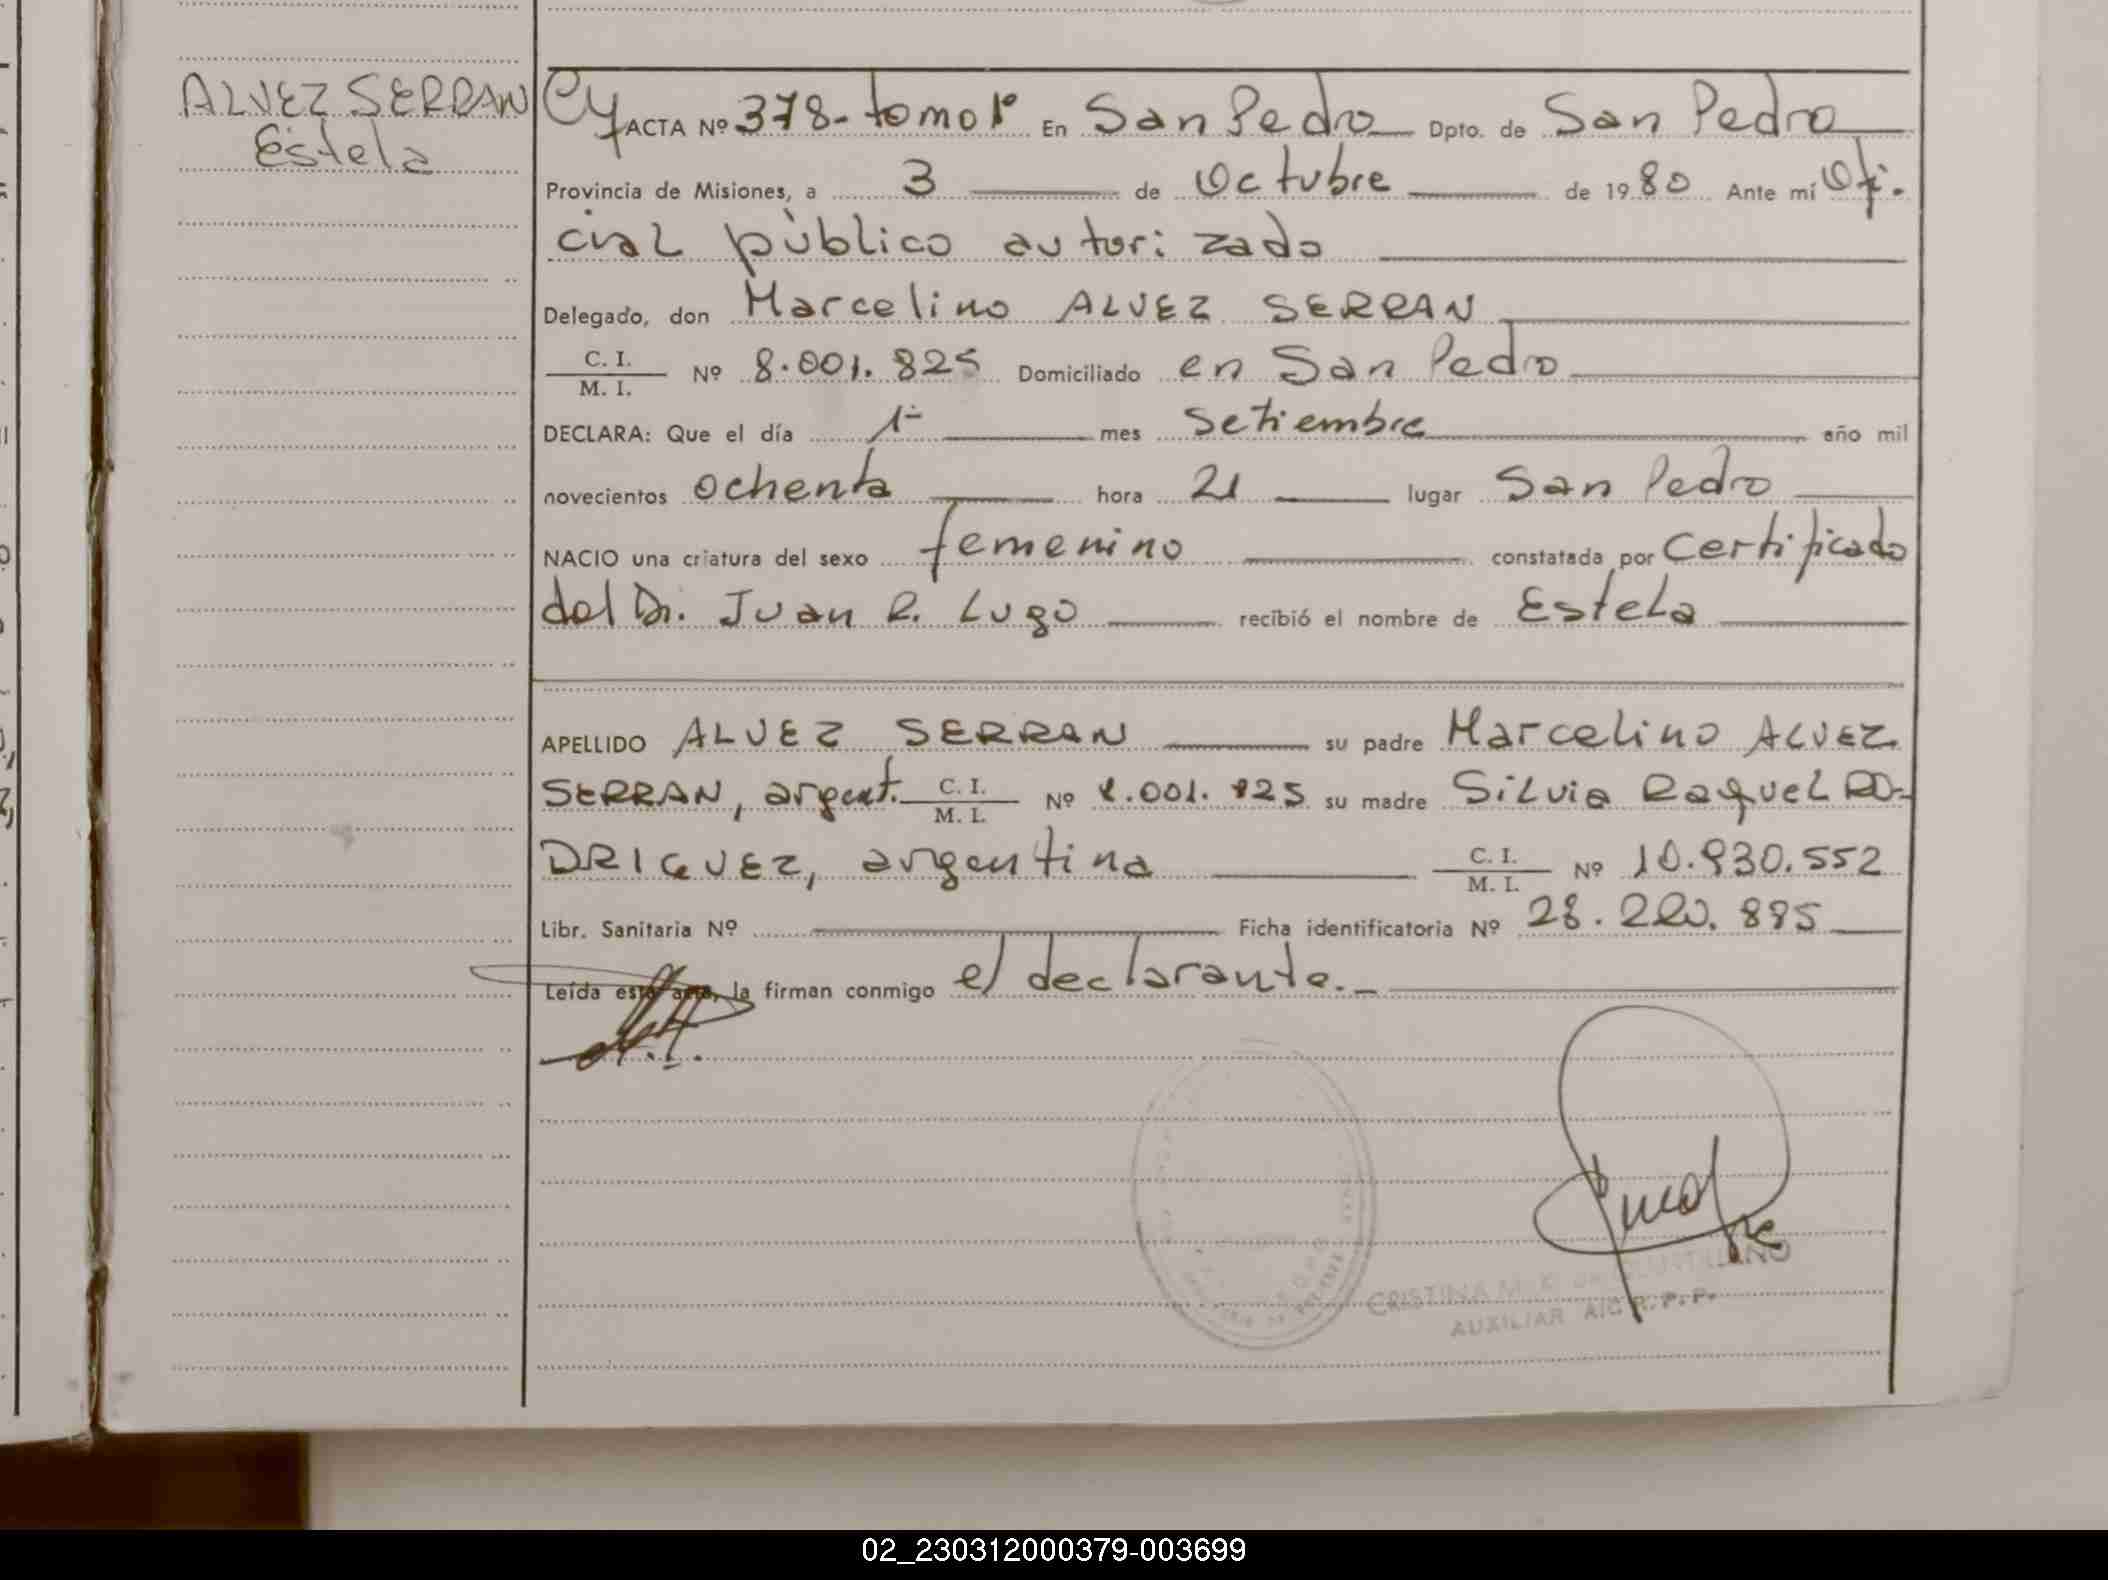 ALVEZ SERRAN
Estela
ACTA Nº 378- tomo 1º En San Pedro Dpto. de San Pedro
Provincia de Misiones, a 3 de Octubre de 1980 Ante mí Ofi.
cial público autorizado
Delegado, don Marcelino ALVEZ SERRAN
C. I.
M. I. Nº 8.001.825 Domiciliado en San Pedro
DECLARA: Que el día 1º mes Setiembre año mil
novecientos ochenta hora 21 lugar San Pedro
NACIO una criatura del sexo femenino constatada por Certificado
del Dr. Juan R. Lugo recibió el nombre de Estela
APELLIDO ALVEZ SERRAN su padre Marcelino ALVEZ
SERRAN, argent. C. I. M. I. Nº 8.001.825 su madre Silvia Raquel RO-
DRIGUEZ, argentina C. I. M. I. Nº 10.930.552
Libr. Sanitaria Nº Ficha identificatoria Nº 28.220.885
Leída esta acta, la firman conmigo el declarante.
CRISTINA M.
AUXILIAR A/C R.P.P.
02_230312000379-003699